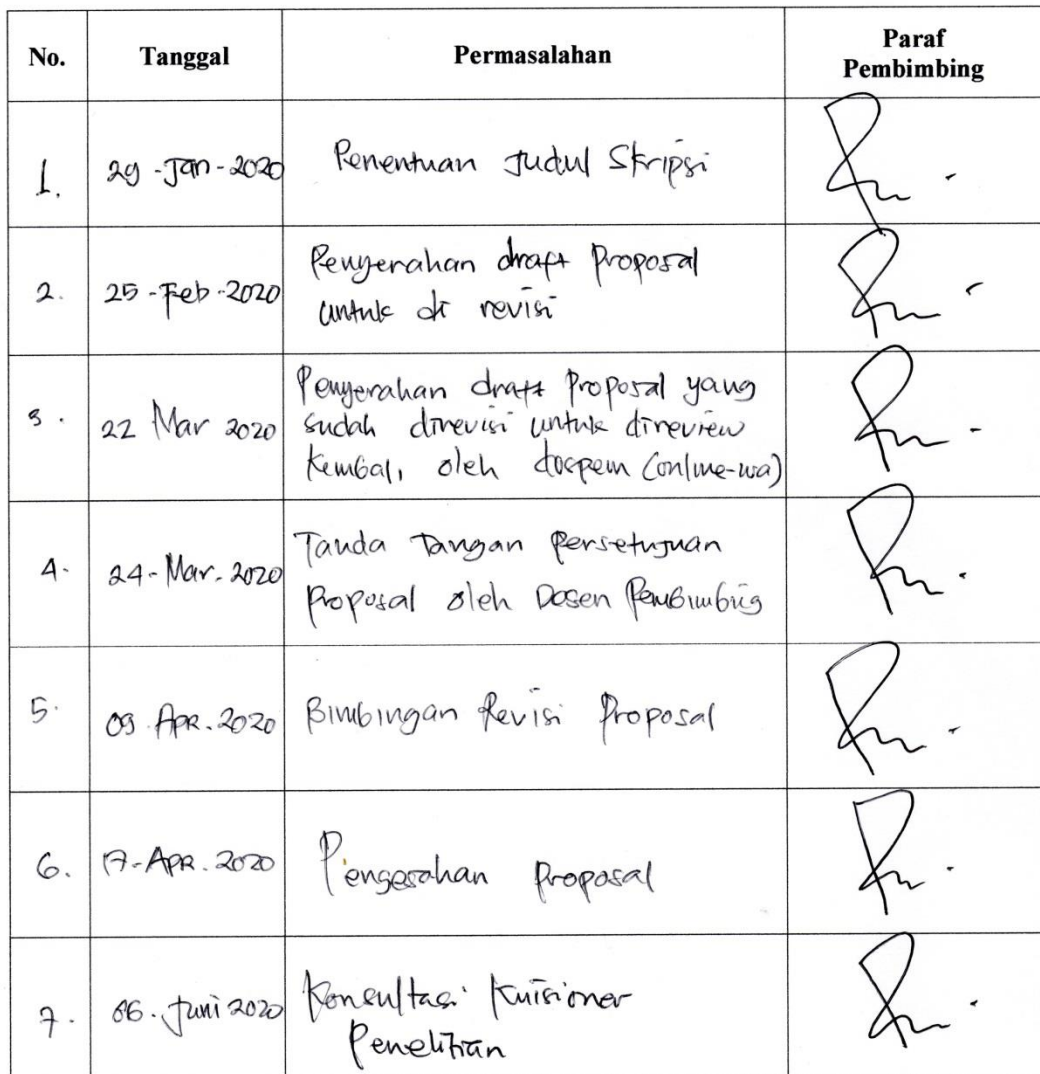 No. Tanggal Permasalahan Paraf
Pembimbing
1. 29-Jan-2020 Penentuan Judul Skripsi
2. 25-Feb-2020 Penyerahan draft Proposal
untuk di revisi
3. 22 Mar 2020 Penyerahan draft Proposal yang
sudah direvisi untuk direview
kembali oleh dospem (online-wa)
4. 24-Mar-2020 Tanda Tangan Persetujuan
Proposal oleh Dosen Pembimbing
5. 09.APR.2020 Bimbingan Revisi Proposal
6. 17-APR.2020 Pengesahan Proposal
7. 06.Juni 2020 Konsultasi Kuisioner
Penelitian